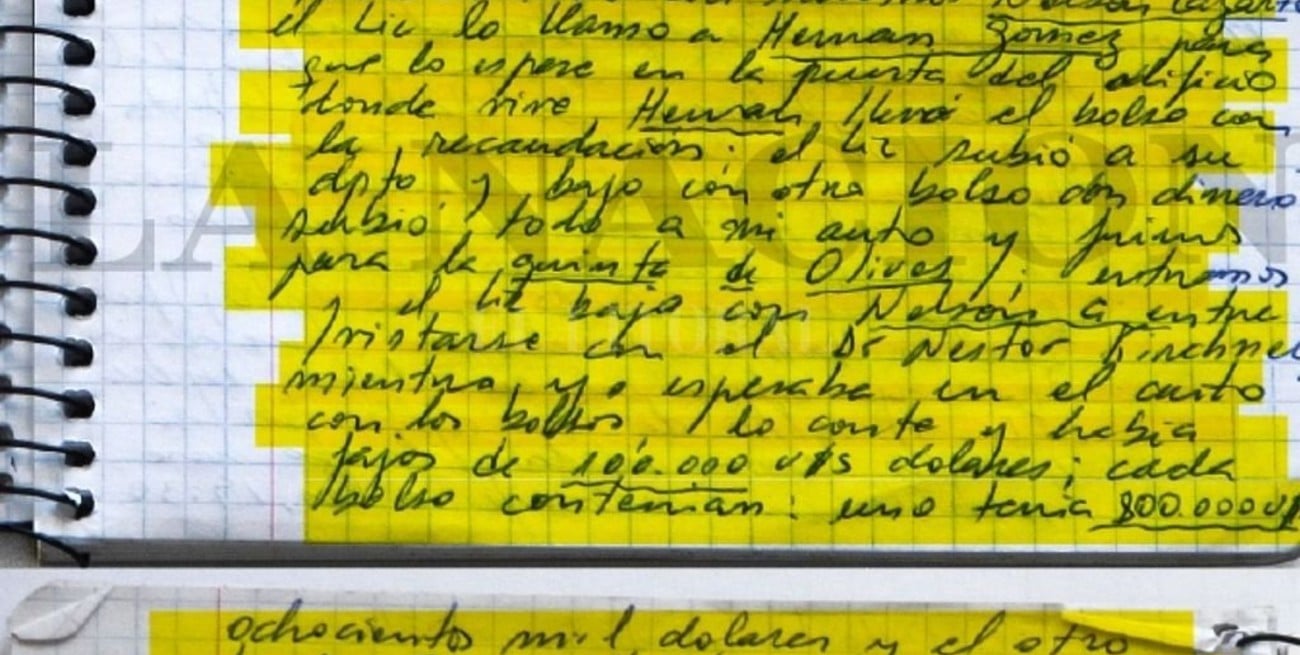 Nelson Lazarte
el Lic lo llamo a Hernan Gomez para
que lo espere en la puerta del edificio
donde vive, Hernan llevó el bolso con
la recaudación; el Lic subió a su
dpto. y bajo con otro bolso con dinero
subio todo a mi auto y fuimos
para la quinta de Olivos; entramos
y el Lic bajo con Nelson a entre
/vistarse con el Dr Nestor Kirchner
mientras yo esperaba en el auto
con los bolsos lo conte y habia
fajos de 100.000 U/S dolares; cada
bolso contenian: uno tenia 800.000 U/
ochocientos mil dolares y el otro
LA NACION